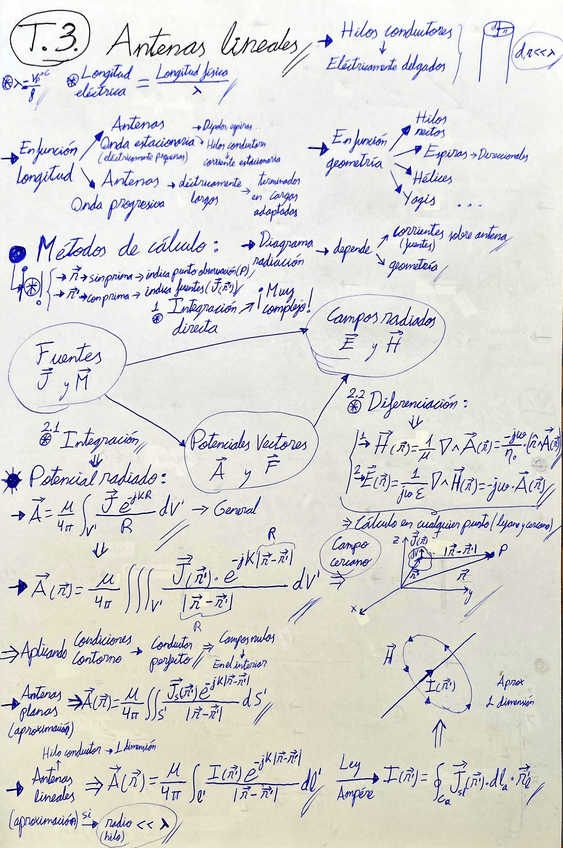 T.3. Antenas lineales
→ Hilos conductores
↓
Eléctricamente delgados
dr<<λ
Longitud eléctrica = Longitud física / λ
→ En función longitud
Antenas Onda estacionaria (eléctricamente pequeñas)
→ Dipolos, espiras..
→ Hilos conductores corriente estacionaria
Antenas Onda progresiva → eléctricamente largos → terminados en cargas adaptadas
→ En función geometría
Hilos rectos
Espiras → Direccionales
Hélices
Yagis ...
Métodos de cálculo: → Diagrama radiación → depende
corrientes sobre antena (fuentes)
geometría
→ r⃗ → sin prima → indica punto observación (P)
→ r⃗' → con prima → indica fuentes (J⃗(r⃗'))
1 Integración directa
¡Muy complejo!
Fuentes J⃗ y M⃗
Campos radiados E⃗ y H⃗
2.1 Integración
Potenciales Vectores A⃗ y F⃗
2.2 Diferenciación:
1 → H⃗(r⃗) = 1/μ ∇∧A⃗(r⃗) = -jω/η₀ · (r̂∧A⃗)
2 → E⃗(r⃗) = 1/jωε ∇∧H⃗(r⃗) = -jω·A⃗(r⃗)
⇒ Cálculo en cualquier punto (lejano y cercano)
Potencial radiado:
→ A⃗ = μ/4π ∫V' J⃗ e^-jKR / R dV' → General
→ A⃗(r⃗) = μ/4π ∭V' J⃗(r⃗')·e^-jK|r⃗-r⃗'| / |r⃗-r⃗'| dV' ⇒
R
R
Campo cercano
z J⃗(r⃗') dV' |r⃗-r⃗'| P
r⃗' r⃗
x y
⇒ Aplicando Condiciones Contorno → Conductor perfecto ⇒ Campos nulos En el interior
→ Antenas planas (aproximación) ⇒ A⃗(r⃗) = μ/4π ∬S' J⃗s(r⃗')e^-jK|r⃗-r⃗'| / |r⃗-r⃗'| dS'
H⃗
I(r⃗')
Aprox 1 dimensión
Hilo conductor → 1 dimensión
→ Antenas lineales ⇒ A⃗(r⃗) = μ/4π ∫l' I(r⃗')e^-jK|r⃗-r⃗'| / |r⃗-r⃗'| dl⃗'
Ley Ampère → I(r⃗') = ∮
(aproximación) si → radio << λ
(hilo)